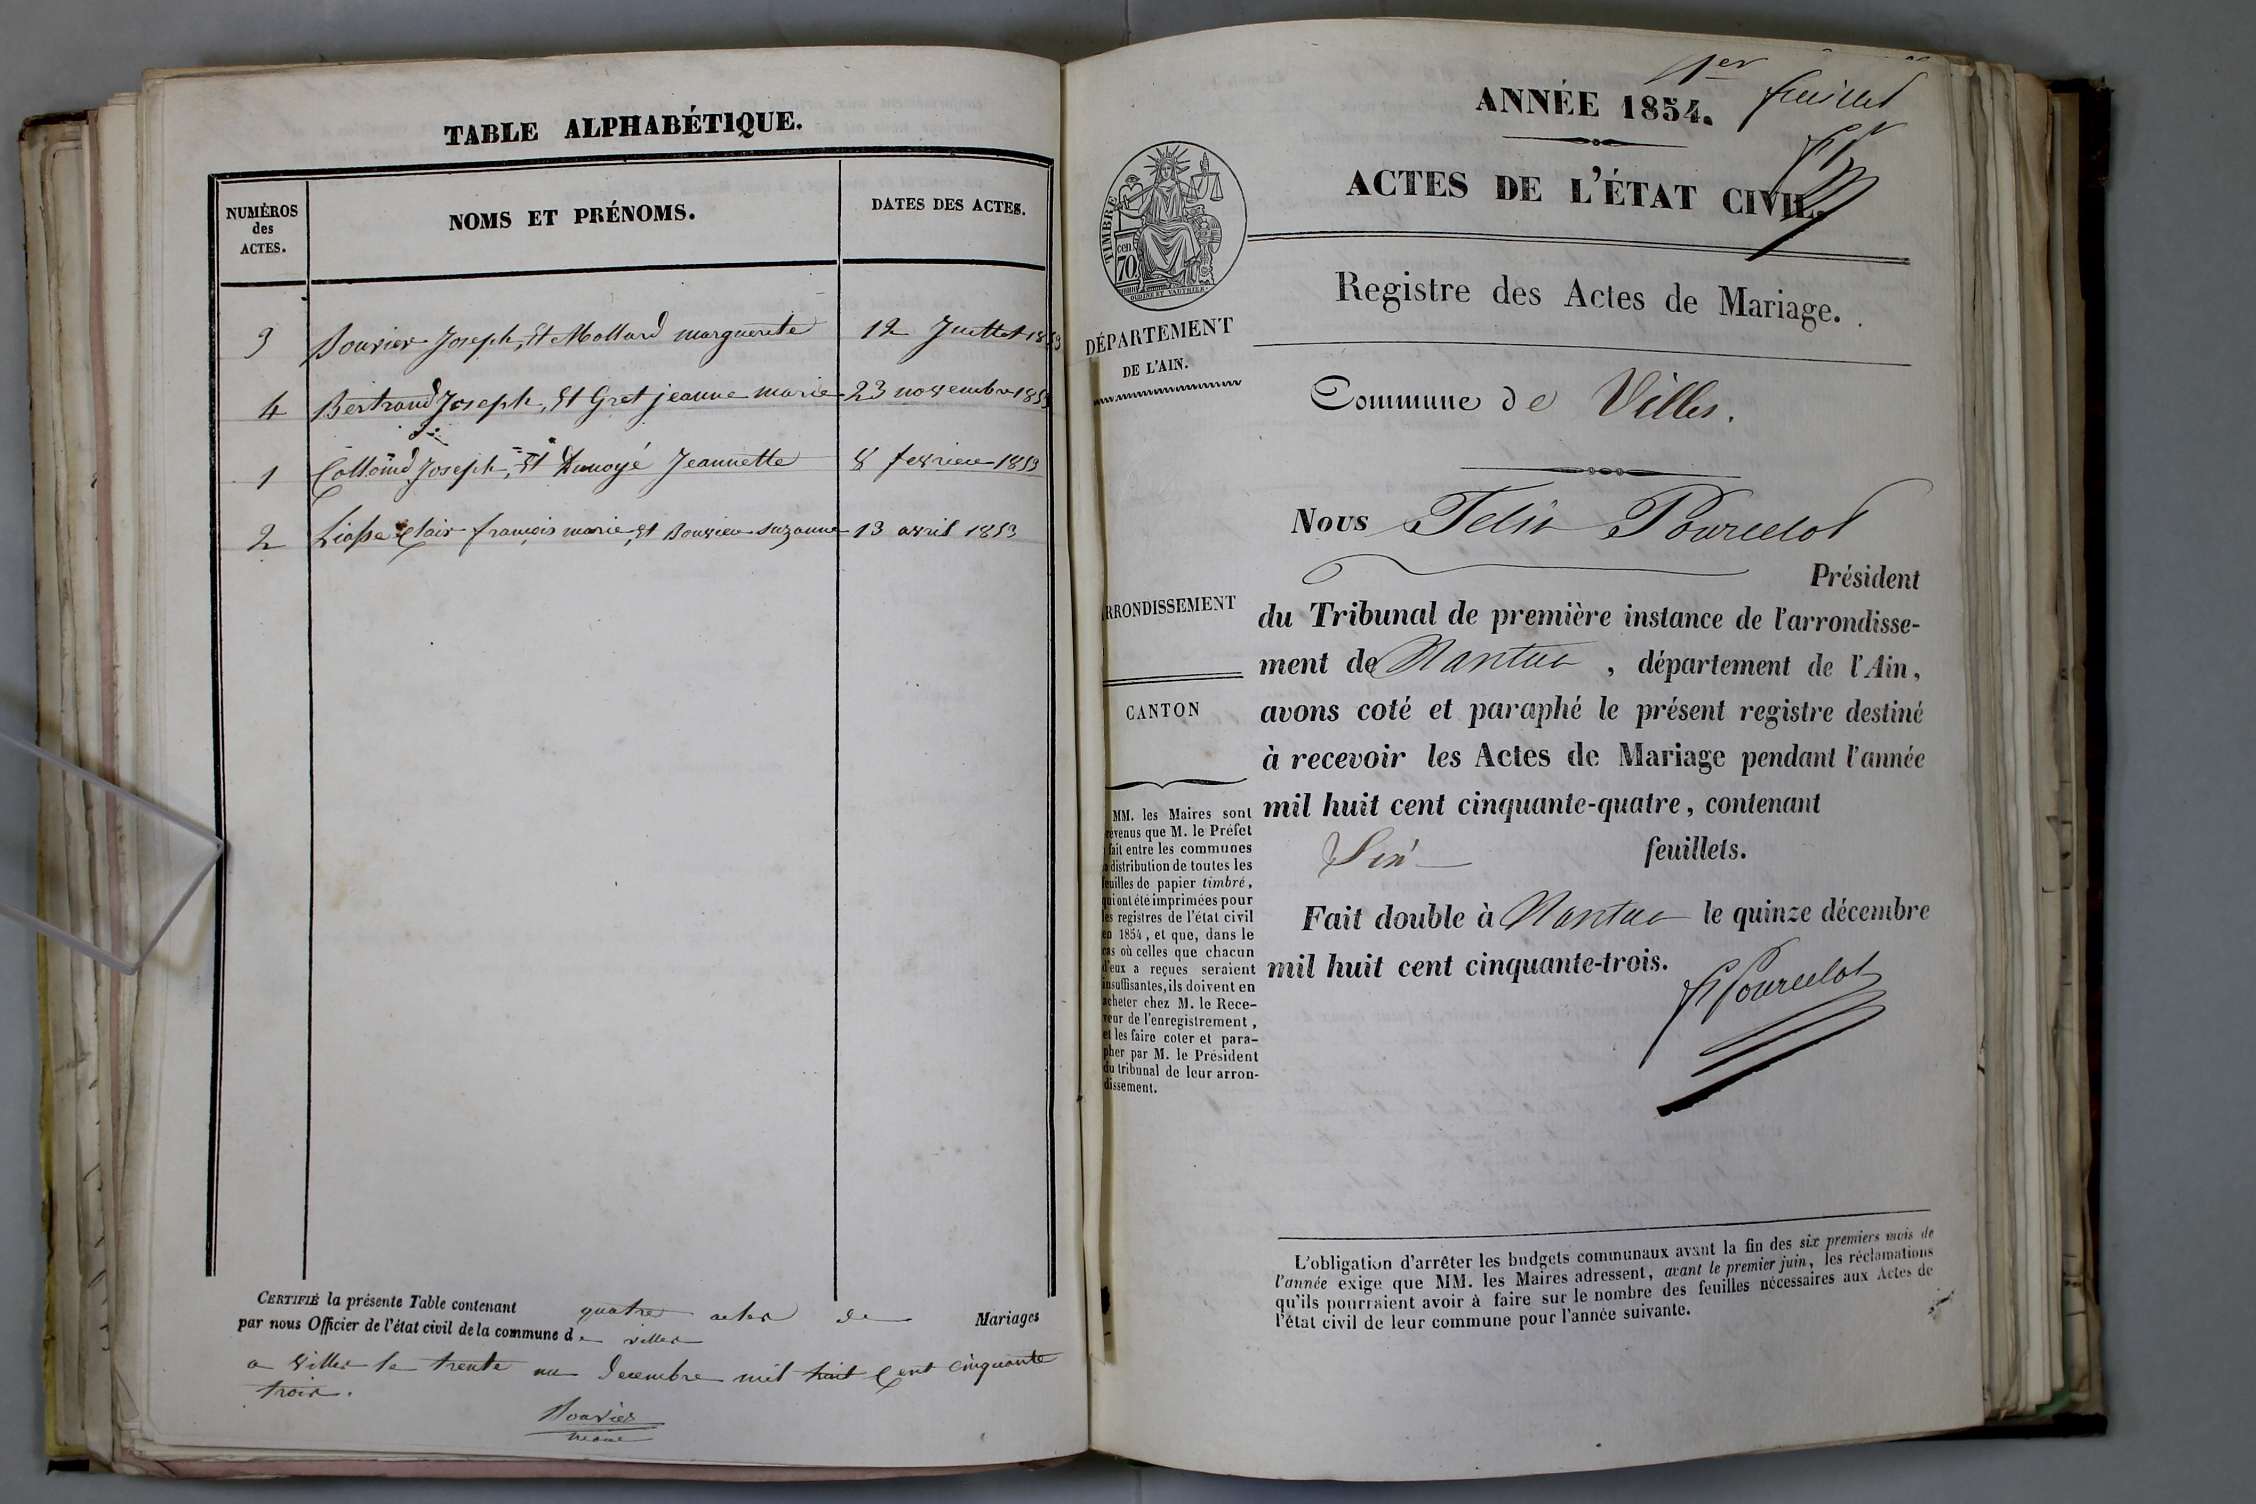 TABLE ALPHABÉTIQUE.
NUMÉROS
des
ACTES.
NOMS ET PRÉNOMS.
DATES DES ACTES.
3 Bouvier Joseph, Et Mollard marguerite 12 Juillet 1853
4 Bertrand Joseph, Et Gret jeanne marie 23 novembre 1853
1 Joseph, Et Jeannette 8 fevrier 1853
2 Clair françois marie, Et Bouvier Suzanne 13 avril 1853
CERTIFIÉ la présente Table contenant quatre actes de Mariages
par nous Officier de l'état civil de la commune de villes
a villes le trente un decembre mil huit Cent cinquante
trois.
Bouvier
maire
1er
feuillet
ANNÉE 1854.
ACTES DE L'ÉTAT CIVIL.
TIMBRE
cen
70
OUDINÉ ET VAUTHIER
Registre des Actes de Mariage.
DÉPARTEMENT
DE L'AIN.
Commune de Villes.
Nous Felix Pourcelot
Président
ARRONDISSEMENT
du Tribunal de première instance de l'arrondisse-
ment de Nantua , département de l'Ain,
CANTON
avons coté et paraphé le présent registre destiné
à recevoir les Actes de Mariage pendant l'année
mil huit cent cinquante-quatre, contenant
Six feuillets.
Fait double à Nantua le quinze décembre
mil huit cent cinquante-trois.
F Pourcelot
MM. les Maires sont
prévenus que M. le Préfet
a fait entre les communes
la distribution de toutes les
feuilles de papier timbré,
qui ont été imprimées pour
les registres de l'état civil
en 1854, et que, dans le
cas où celles que chacun
d'eux a reçues seraient
insuffisantes, ils doivent en
acheter chez M. le Rece-
veur de l'enregistrement,
et les faire coter et para-
pher par M. le Président
du tribunal de leur arron-
dissement.
L'obligation d'arrêter les budgets communaux avant la fin des six premiers mois de
l'année exige que MM. les Maires adressent, avant le premier juin, les réclamations
qu'ils pourraient avoir à faire sur le nombre des feuilles nécessaires aux Actes de
l'état civil de leur commune pour l'année suivante.